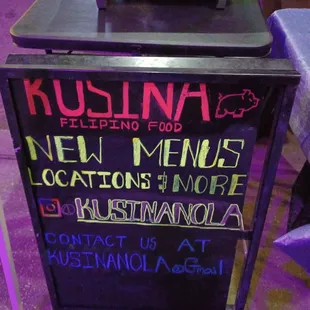 KUSINA
FILIPINO FOOD
NEW MENUS
LOCATIONS & MORE
@KUSINANOLA
CONTACT US AT
KUSINANOLA@Gmail